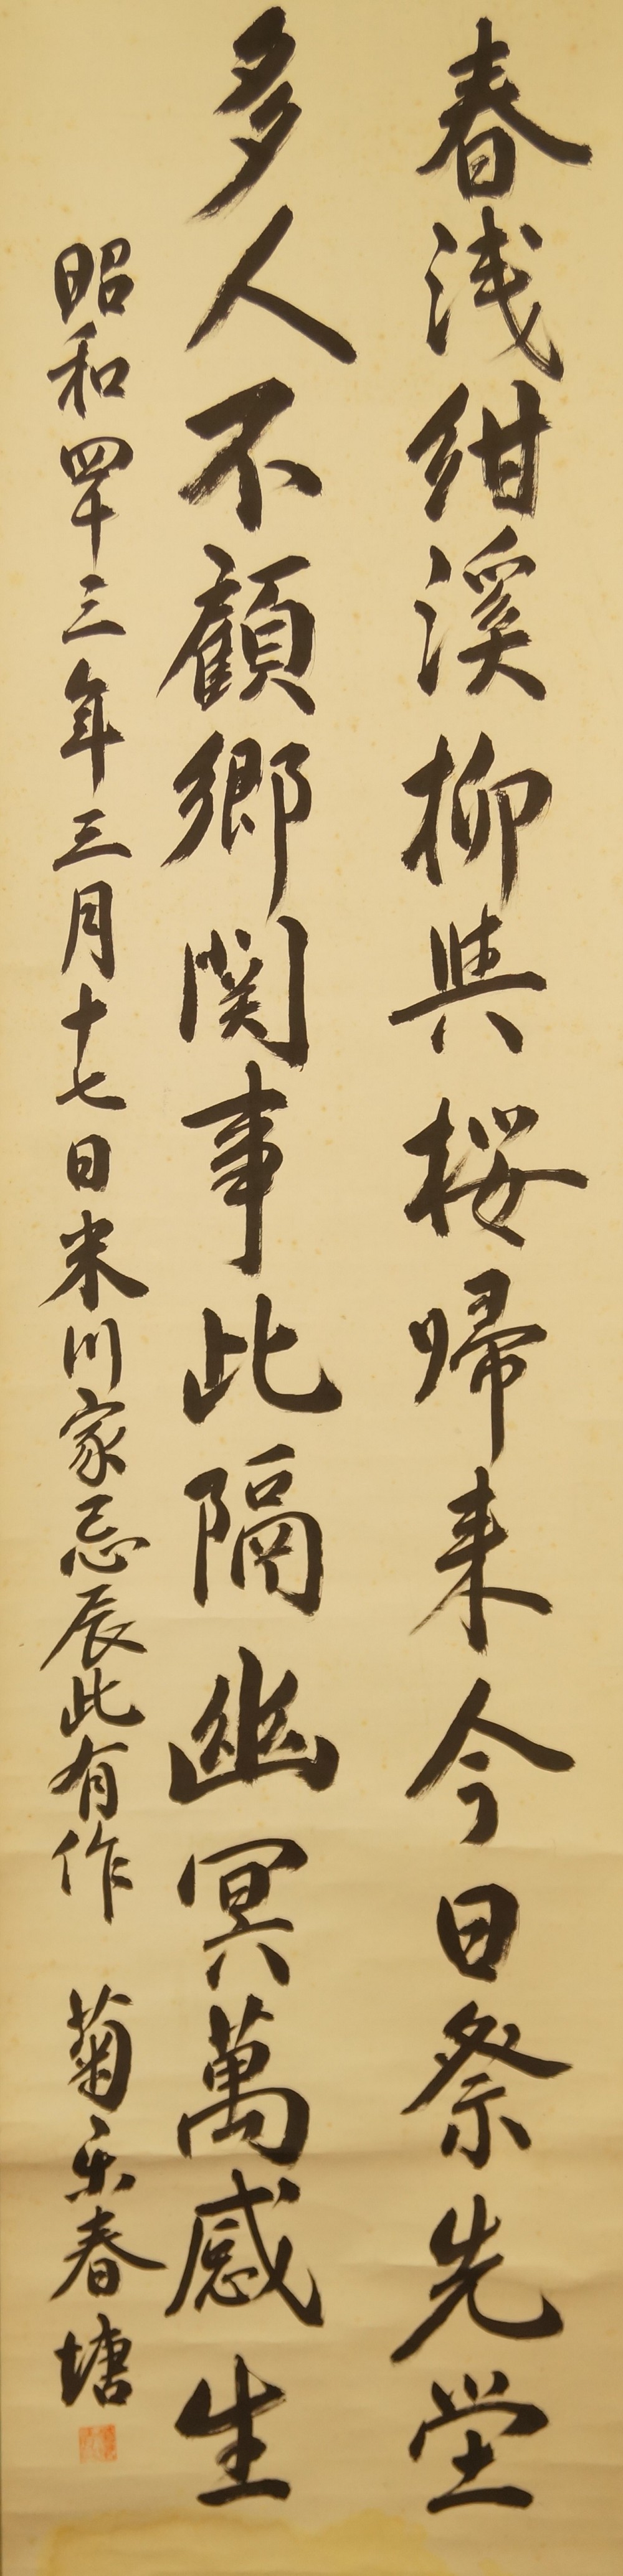 春浅紺溪柳與桜帰来今日祭先塋
多人不顧郷関事此隔幽冥萬感生
昭和四十三年三月十七日米川家忌辰此有作 菊 春塘